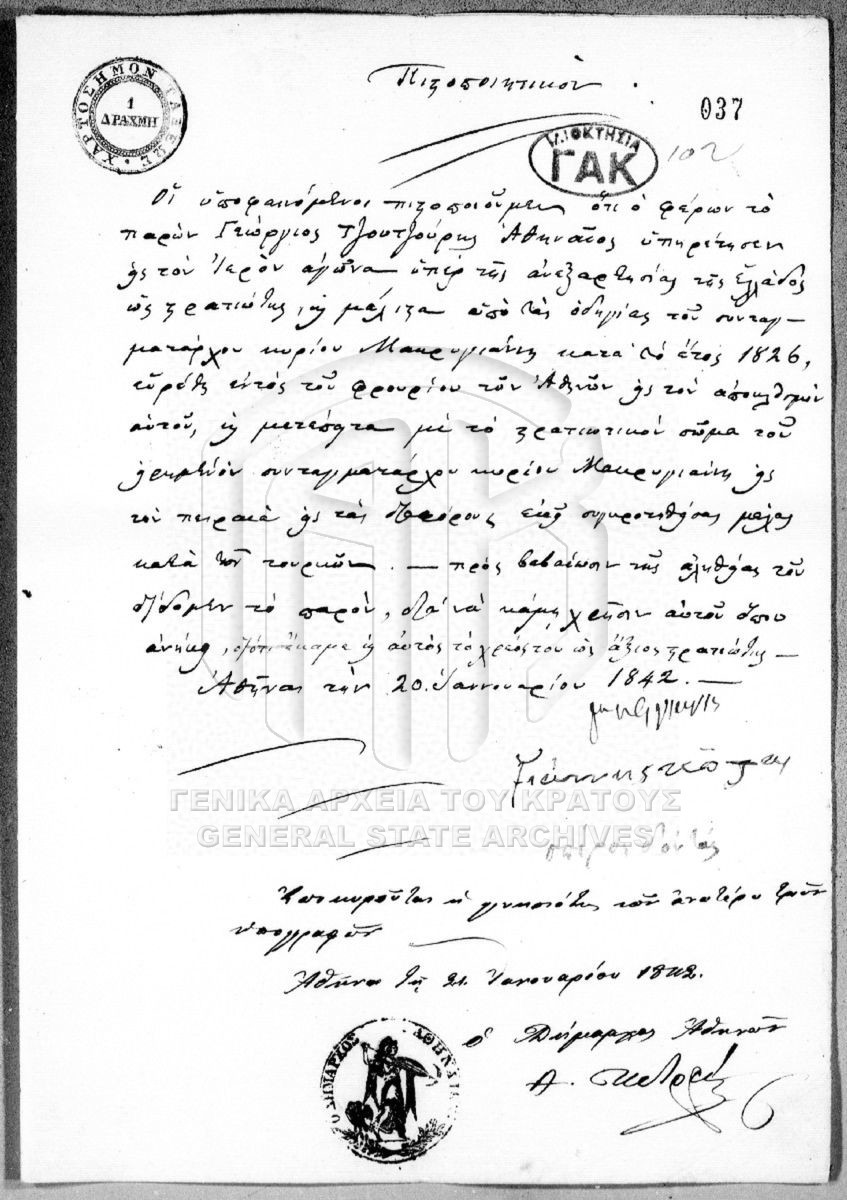 ΧΑΡΤΟΣΗΜΟΝ ΤΑΞΕΩΣ
1
ΔΡΑΧΜΗ
Πιστοποιητικόν
037
ΙΔΙΟΚΤΗΣΙΑ
ΓΑΚ
102
Οἱ ὑποφαινόμενοι πιστοποιοῦμεν ὅτι ὁ φέρων τὸ
παρὸν Γεώργιος Τζουτζούρης Ἀθηναῖος ὑπηρέτησεν
εἰς τὸν Ἱερὸν ἀγῶνα ὑπὲρ τῆς ἀνεξαρτησίας τῆς Ἑλλάδος
ὡς στρατιώτης, καὶ μάλιστα ὑπὸ τὰς ὁδηγίας τοῦ συνταγ-
ματάρχου κυρίου Μακρυγιάννη κατὰ τὸ ἔτος 1826,
εὑρέθη ἐντὸς τοῦ φρουρίου τῶν Ἀθηνῶν εἰς τὸν ἀποκλεισμὸν
αὐτοῦ, καὶ μετέπειτα μὲ τὸ στρατιωτικὸν σῶμα τοῦ
συνταγματάρχου κυρίου Μακρυγιάννη εἰς
τὸν πειραιᾶ εἰς τὰς διαφόρους ἐκεῖ συγκροτηθείσας μάχας
κατὰ τῶν τουρκῶν. — πρὸς βεβαίωσιν τῆς ἀληθείας τοῦ
δίδομεν τὸ παρὸν, διὰ νὰ κάμῃ χρῆσιν αὐτοῦ ὅπου
ἀνήκει, διότι ἔκαμε καὶ αὐτὸς τὸ χρέος του ὡς ἄξιος στρατιώτης —
Ἀθῆναι τὴν 20 Ἰαννουαρίου 1842. —
ΓΕΝΙΚΑ ΑΡΧΕΙΑ ΤΟΥ ΚΡΑΤΟΥΣ
GENERAL STATE ARCHIVES
Ἐπικυροῦται ἡ γνησιότης τῶν ἀνωτέρω τριῶν
ὑπογραφῶν
Ἀθῆναι τῇ 21 Ἰανουαρίου 1842.
Ὁ Δήμαρχος Ἀθηνῶν
Ο ΔΗΜΑΡΧΟΣ ΑΘΗΝΑΙΩΝ